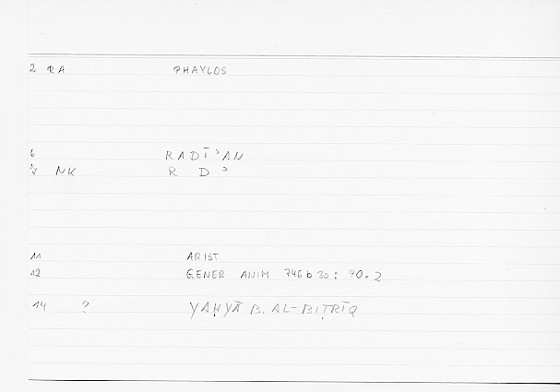 2 RA PHAYLOS
6 RADĪʾAN
NK R D ʾ
11 ARIST
12 GENER ANIM 746b30; 90.2
14 ? YAḤYĀ B. AL-BIṬRĪQ